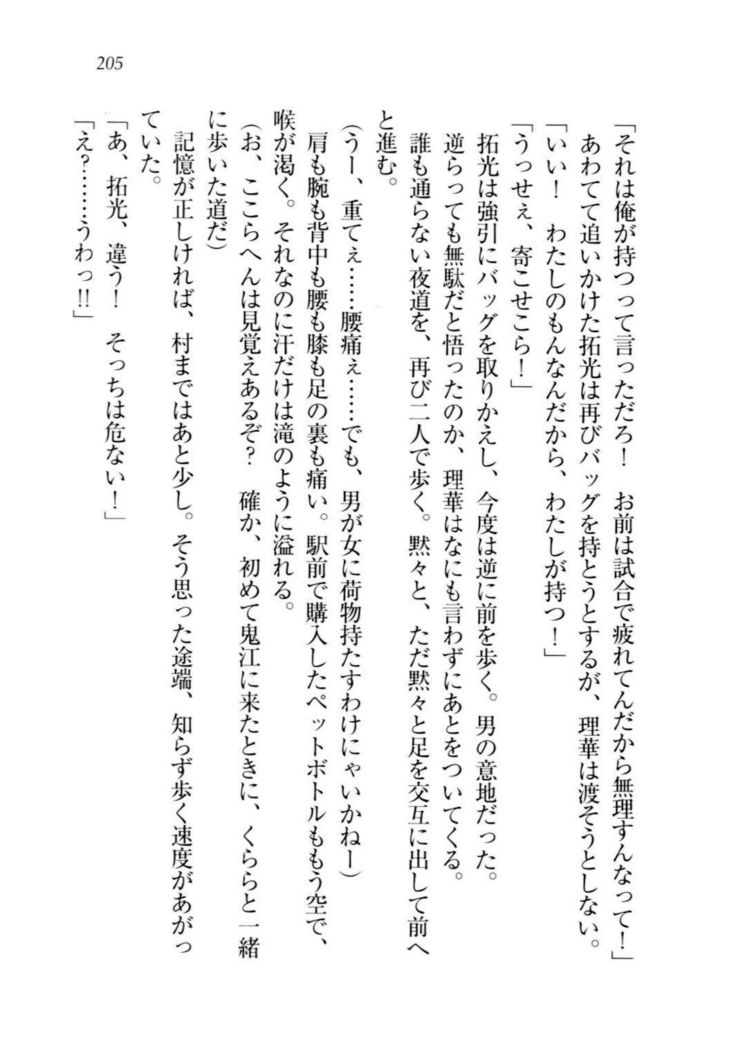 205
「それは俺が持つって言っただろ！　お前は試合で疲れてんだから無理すんなって！」
あわてて追いかけた拓光は再びバッグを持とうとするが、理華は渡そうとしない。
「いい！　わたしのもんなんだから、わたしが持つ！」
「うっせぇ、寄こせこら！」
拓光は強引にバッグを取りかえし、今度は逆に前を歩く。男の意地だった。
逆らっても無駄だと悟ったのか、理華はなにも言わずにあとをついてくる。
誰も通らない夜道を、再び二人で歩く。黙々と、ただ黙々と足を交互に出して前へ
と進む。
（うー、重てぇ……腰痛ぇ……でも、男が女に荷物持たすわけにゃいかねー）
肩も腕も背中も腰も膝も足の裏も痛い。駅前で購入したペットボトルももう空で、
喉が渇く。それなのに汗だけは滝のように溢れる。
（お、ここらへんは見覚えあるぞ？　確か、初めて鬼江に来たときに、くららと一緒
に歩いた道だ）
記憶が正しければ、村まではあと少し。そう思った途端、知らず歩く速度があがっ
ていた。
「あ、拓光、違う！　そっちは危ない！」
「え？……うわっ!!」